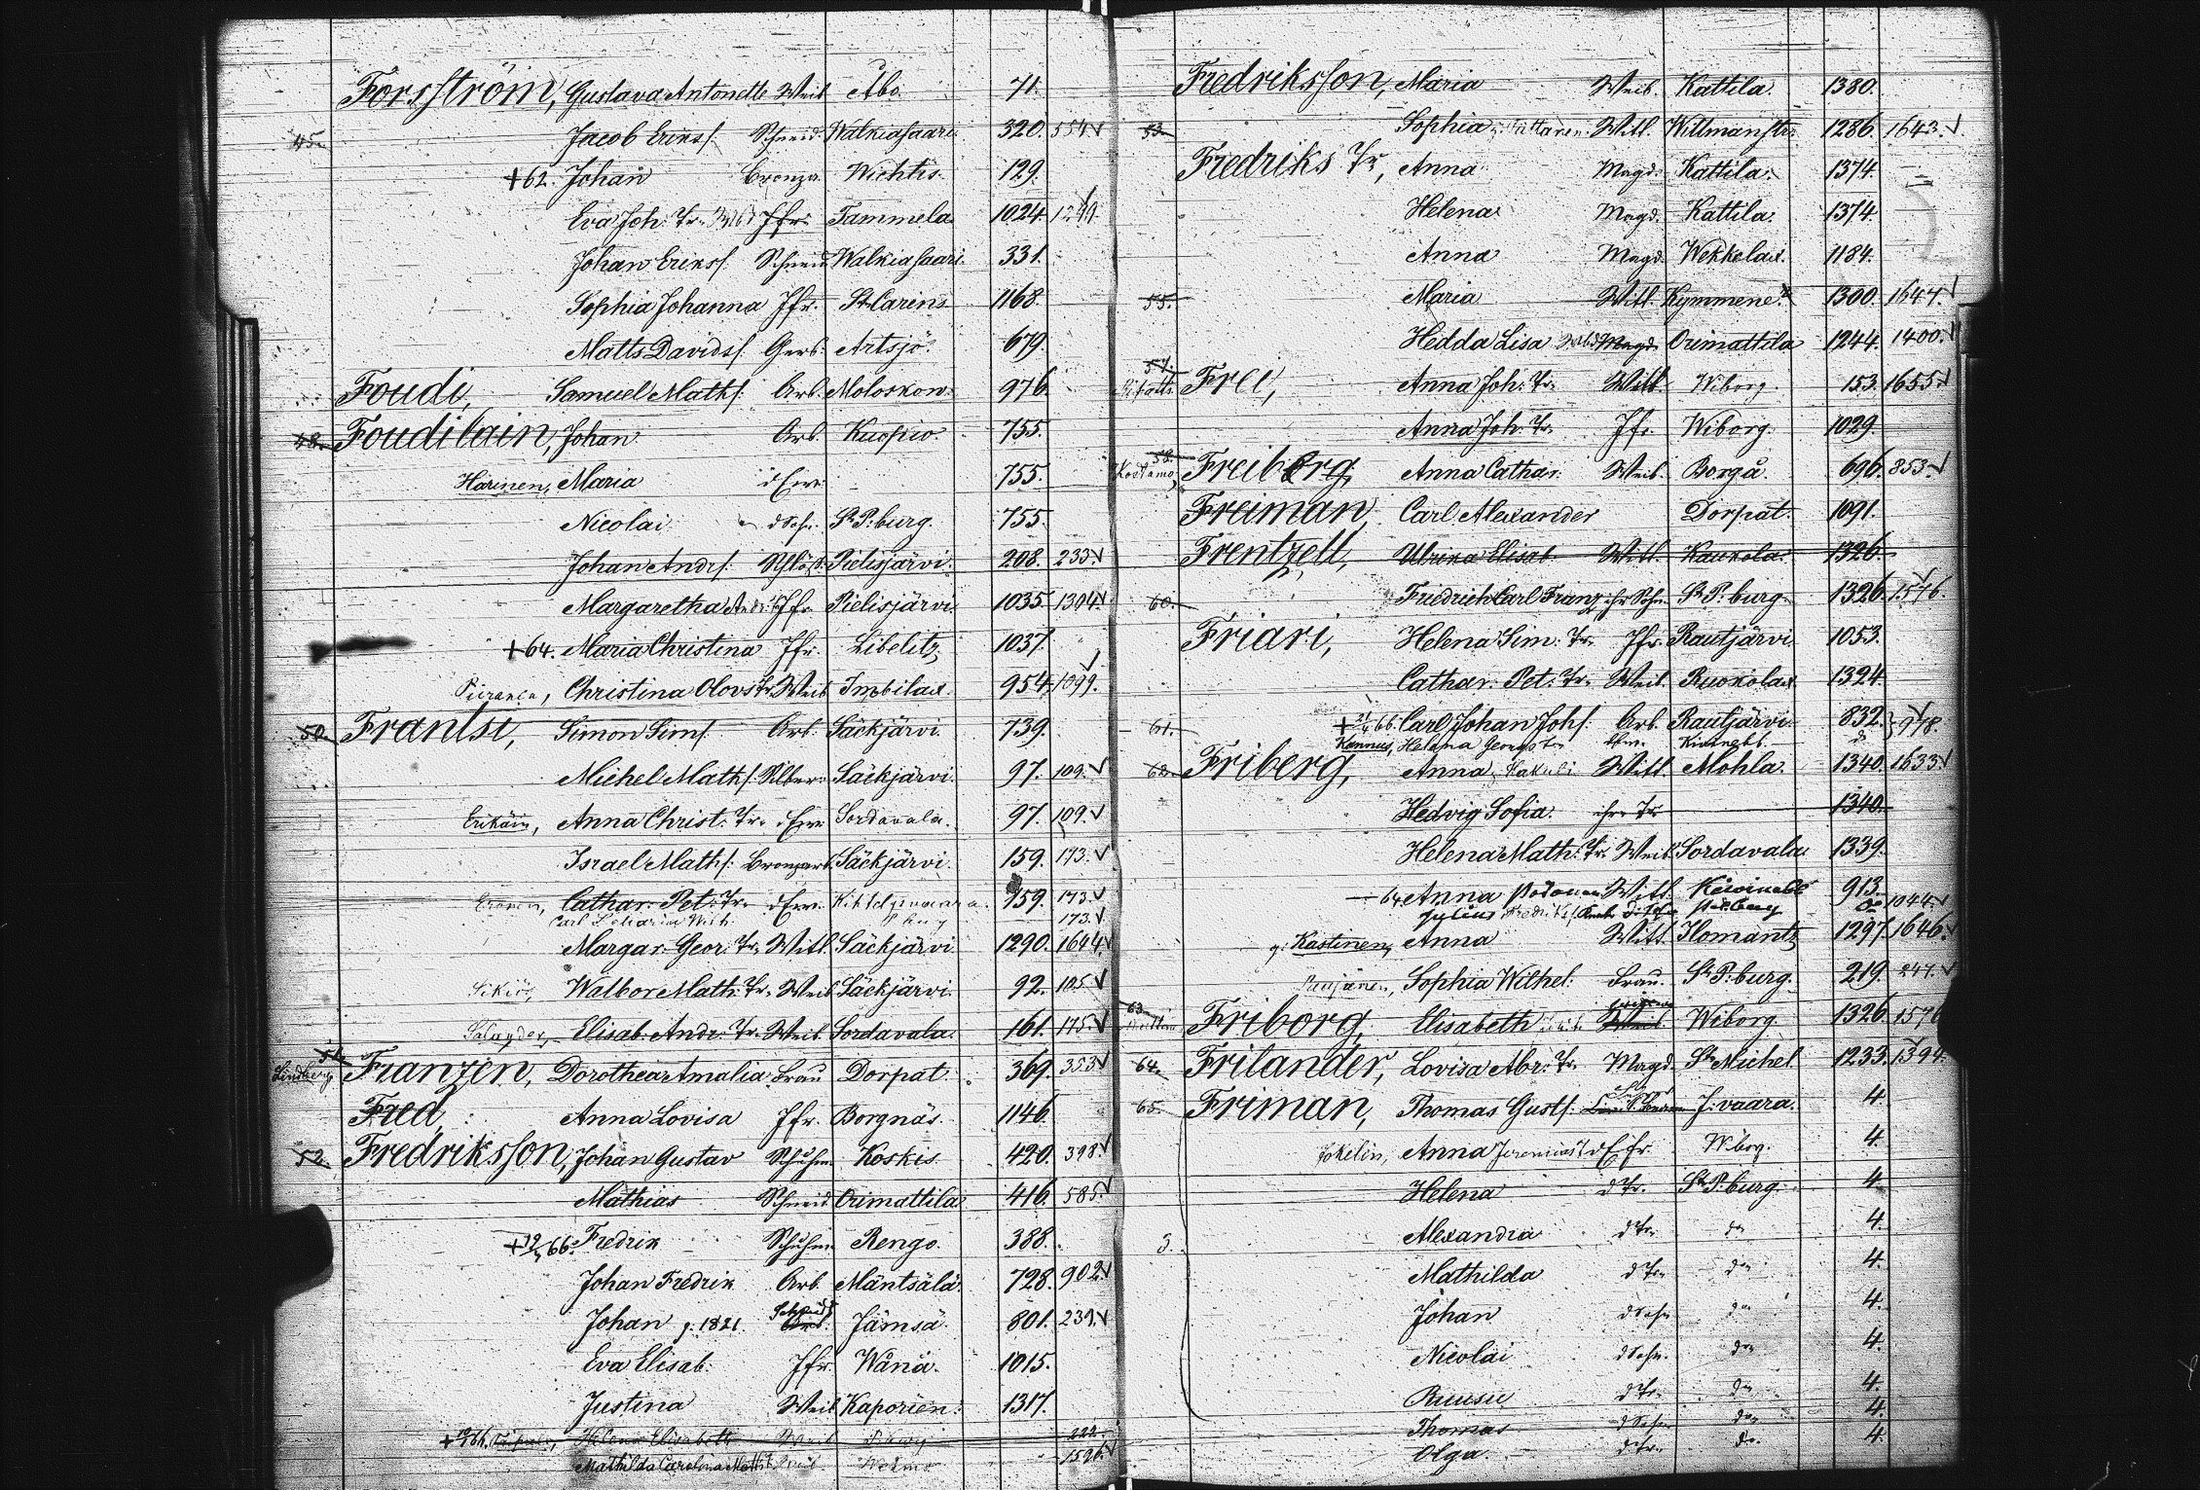 Forsström, Gustava Antonette Weib Åbo. 71.
45. Jacob Erikss. Schneid. Walkiasaari. 320. 554 √
+62. Johan Bronza. Wichtis. 129.
Eva Joh. Tr. Jfr. Tammela 1024. 1299.
Johan Erikss. Schneid. Walkiasaari. 331.
Sophia Johanna Jfr. St. Carins 1168.
Matts Davids. Gerb. Artsjö. 679.
Foudi, Samuel Maths. Arb. Moloskow. 976.
48. Foudilain, Johan Arb. Kuopio. 755.
Härinen, Maria d. Frau 755.
Nicolai d. Sohn St. P.burg. 755.
Johan Andrs. Schlöß. Pielisjärvi. 208. 233. √
Margaretha Andr. Jfr. Pielisjärvi 1035. 1304. √
+64. Maria Christina Jfr. Libelitz 1037.
Christina Olovs Tr. Weib Imbilax. 954. 1099.
50. Frantsi, Simon Sims. Arb. Säckjärvi. 739.
Michel Maths. Silber. Säckjärvi. 97. 109. √
Erikäin, Anna Christ. Tr. d. Frau Sordavala. 97. 109. √
Israel Maths. Bronzearb. Säckjärvi. 159. 173. √
Cathar. Pet. Tr. d. Frau. 159. 173. √
173. √
Margar. Geor. Tr. Witt. Säckjärvi 1290. 1644. √
Walbor Math. Tr. Weib Säckjärvi. 92. 105 √
Elisab. Andr. Tr. Weib. Sordavala. 161. 175. √
51. Lindberg, Franzén, Dorothea Amalia Frau Dorpat. 369. 353 √
Fred, Anna Lovisa Jfr. Borgnäs. 1146.
52. Fredriksson, Johan Gustav Schuhm. Koskis. 420. 398. √
Mathias Schneid. Orimattila 416. 585. √
+ 66. Fredrik Schuhm. Rengo. 388.
Johan Fredrik Arb. Mäntsälä. 728. 902. √
Johan g. 1821. Schneid. Arb. Jämsä. 801. 239. √
Eva Elisab. Jfr. Wånå. 1015.
Justina Weib Kaporien. 1317.
Helena Elisabeth Weib 222.
Mathilda Carolina Weib. 1596. √
Fredriksson, Maria Weib. Kattila. 1380.
53. Sophia Witt. Willmanstr. 1286. 1643. √
Fredriks Tr., Anna Magd. Kattila. 1374.
Helena Magd. Kattila. 1374.
Anna Magd. Wekkelax. 1184.
55. Maria Witt. Kymmene. 1300. 1647. √
Hedda Lisa Magd. Orimattila 1244. 1400. √
57. Frei, Anna Joh. Tr. Witt. Wiborg. 153. 1655. √
Anna Joh. Tr. Jfr. Wiborg. 1029.
58. Freiberg, Anna Cathar. Weib. Borgå. 696. 853. √
Freiman, Carl Alexander Dorpat. 1091.
Frentzell, Ulrika Elisab. Witt. Kaukola. 1326.
60. Friedrich Carl Franz ihr Sohn. St. P.burg. 1326. 1576.
Friari, Helena Sim. Tr. Jfr. Rautjärvi. 1053.
Cathar. Pet. Tr. Weib. Ruokolax. 1324.
61. + 66. Carl Johan Johs. Arb. Rautjärvi. 832. 978.
Kannus, Helena Georgs Tr.
62. Friberg, Anna Witt. Mohla. 1340. 1633. √
Hedvig Sofia. ihre Tr. 1340.
Helena Math. Tr. Weib. Sordavala 1339.
64 Anna Witt. 913. 1044. √
Julius
g. Kastinen, Anna Witt. Ilomants 1297. 1646. √
Sophia Wilhel. Frau. St. P.burg. 219. 247. √
63. Friborg, Elisabeth Weib Wiborg. 1326. 1576
64. Frilander, Lovisa Abr. Tr. Magd. St. Michel. 1233. 1394.
65. Friman, Thomas Gusts. J:vaara. 4.
Jokelin, Anna Jeremias T. d. Frau Wiborg. 4.
Helena d. Tr. St. P.burg. 4.
3. Alexandra d. Tr. do 4.
Mathilda d. Tr. do 4.
Johan d. Sohn do 4.
Nicolai d. Sohn. do 4.
Ruusu d. Tr. do 4.
Thomas d. Sohn do 4.
Olga. d. Tr. do. 4.